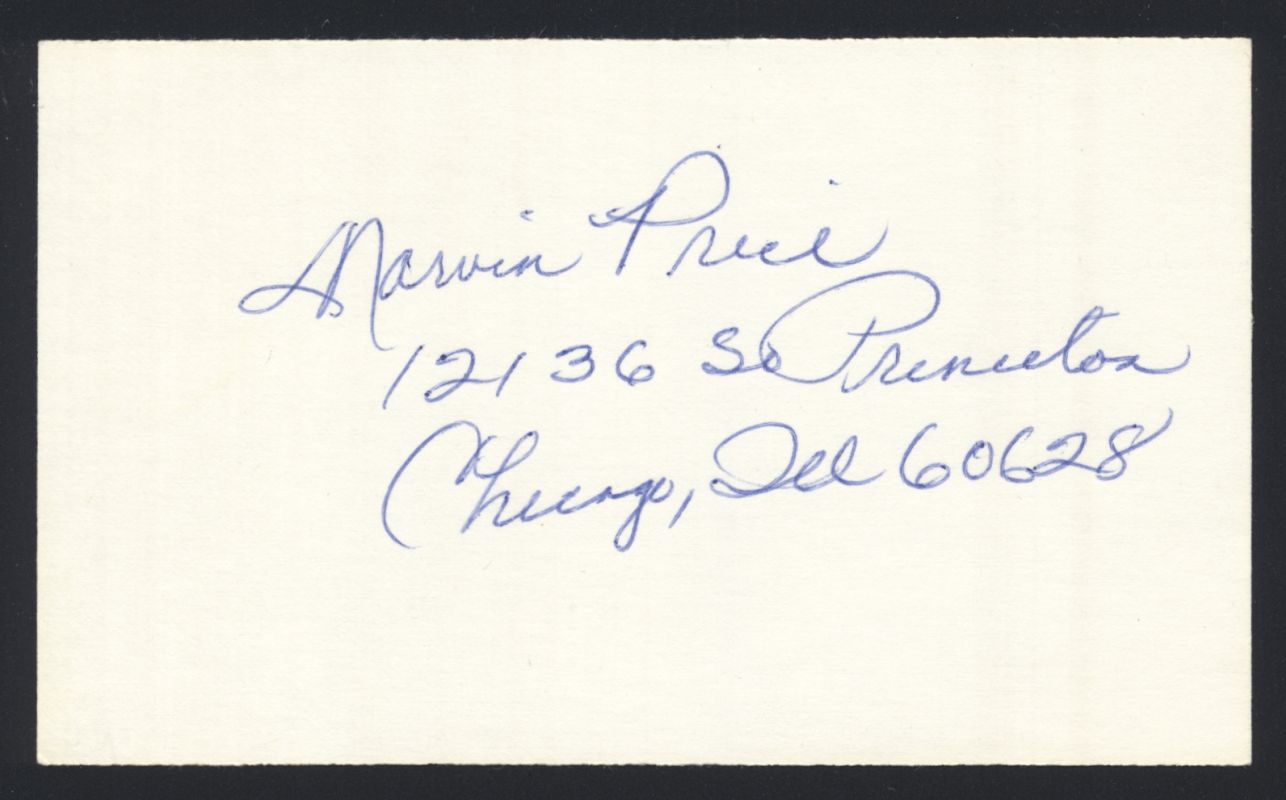 Marvin Price
12136 So Princeton
Chicago, Ill 60628